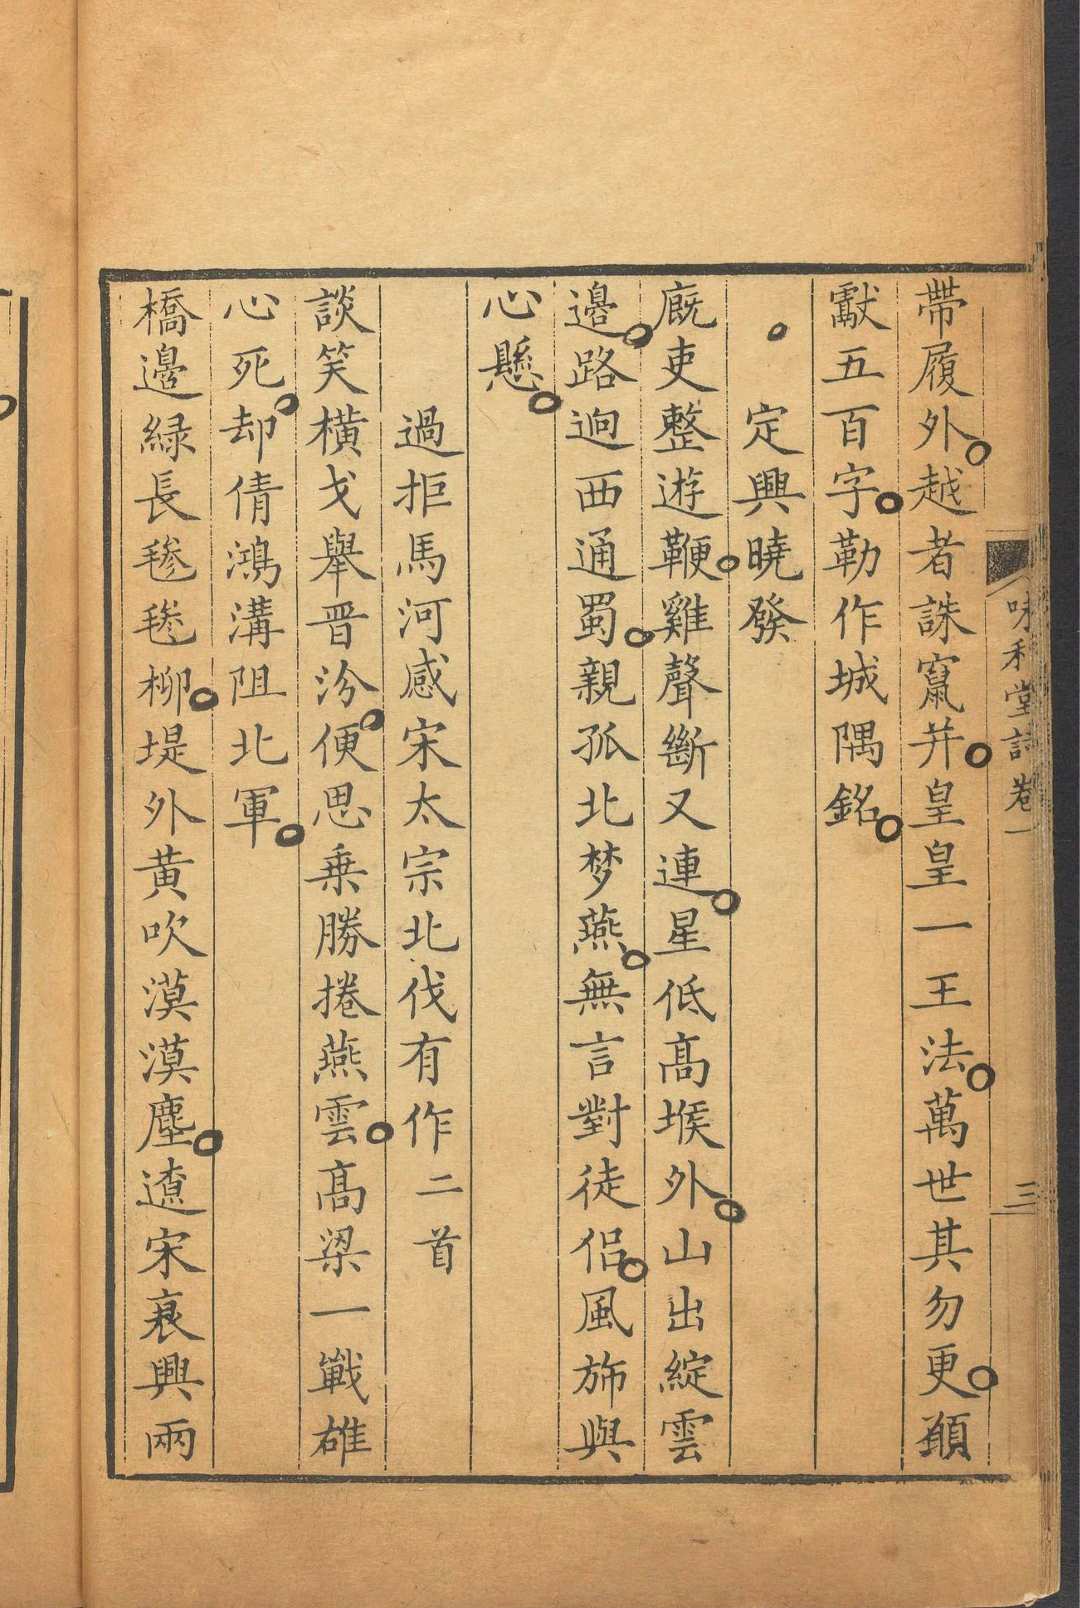 味和堂詩卷一
三
帶履外越者誅竄并皇皇一王法萬世其勿更願
獻五百字勒作城隅銘
定興曉發
廐吏整遊鞭雞聲斷又連星低高堠外山出綻雲
邊路逈西通蜀親孤北梦燕無言對徒侶風斾與
心懸
過拒馬河感宋太宗北伐有作二首
談笑橫戈舉晋汾便思乗勝捲燕雲高梁一戰雄
心死却倩鴻溝阻北軍
橋邊緑長毵毵柳堤外黃吹漠漠塵遼宋衰興兩